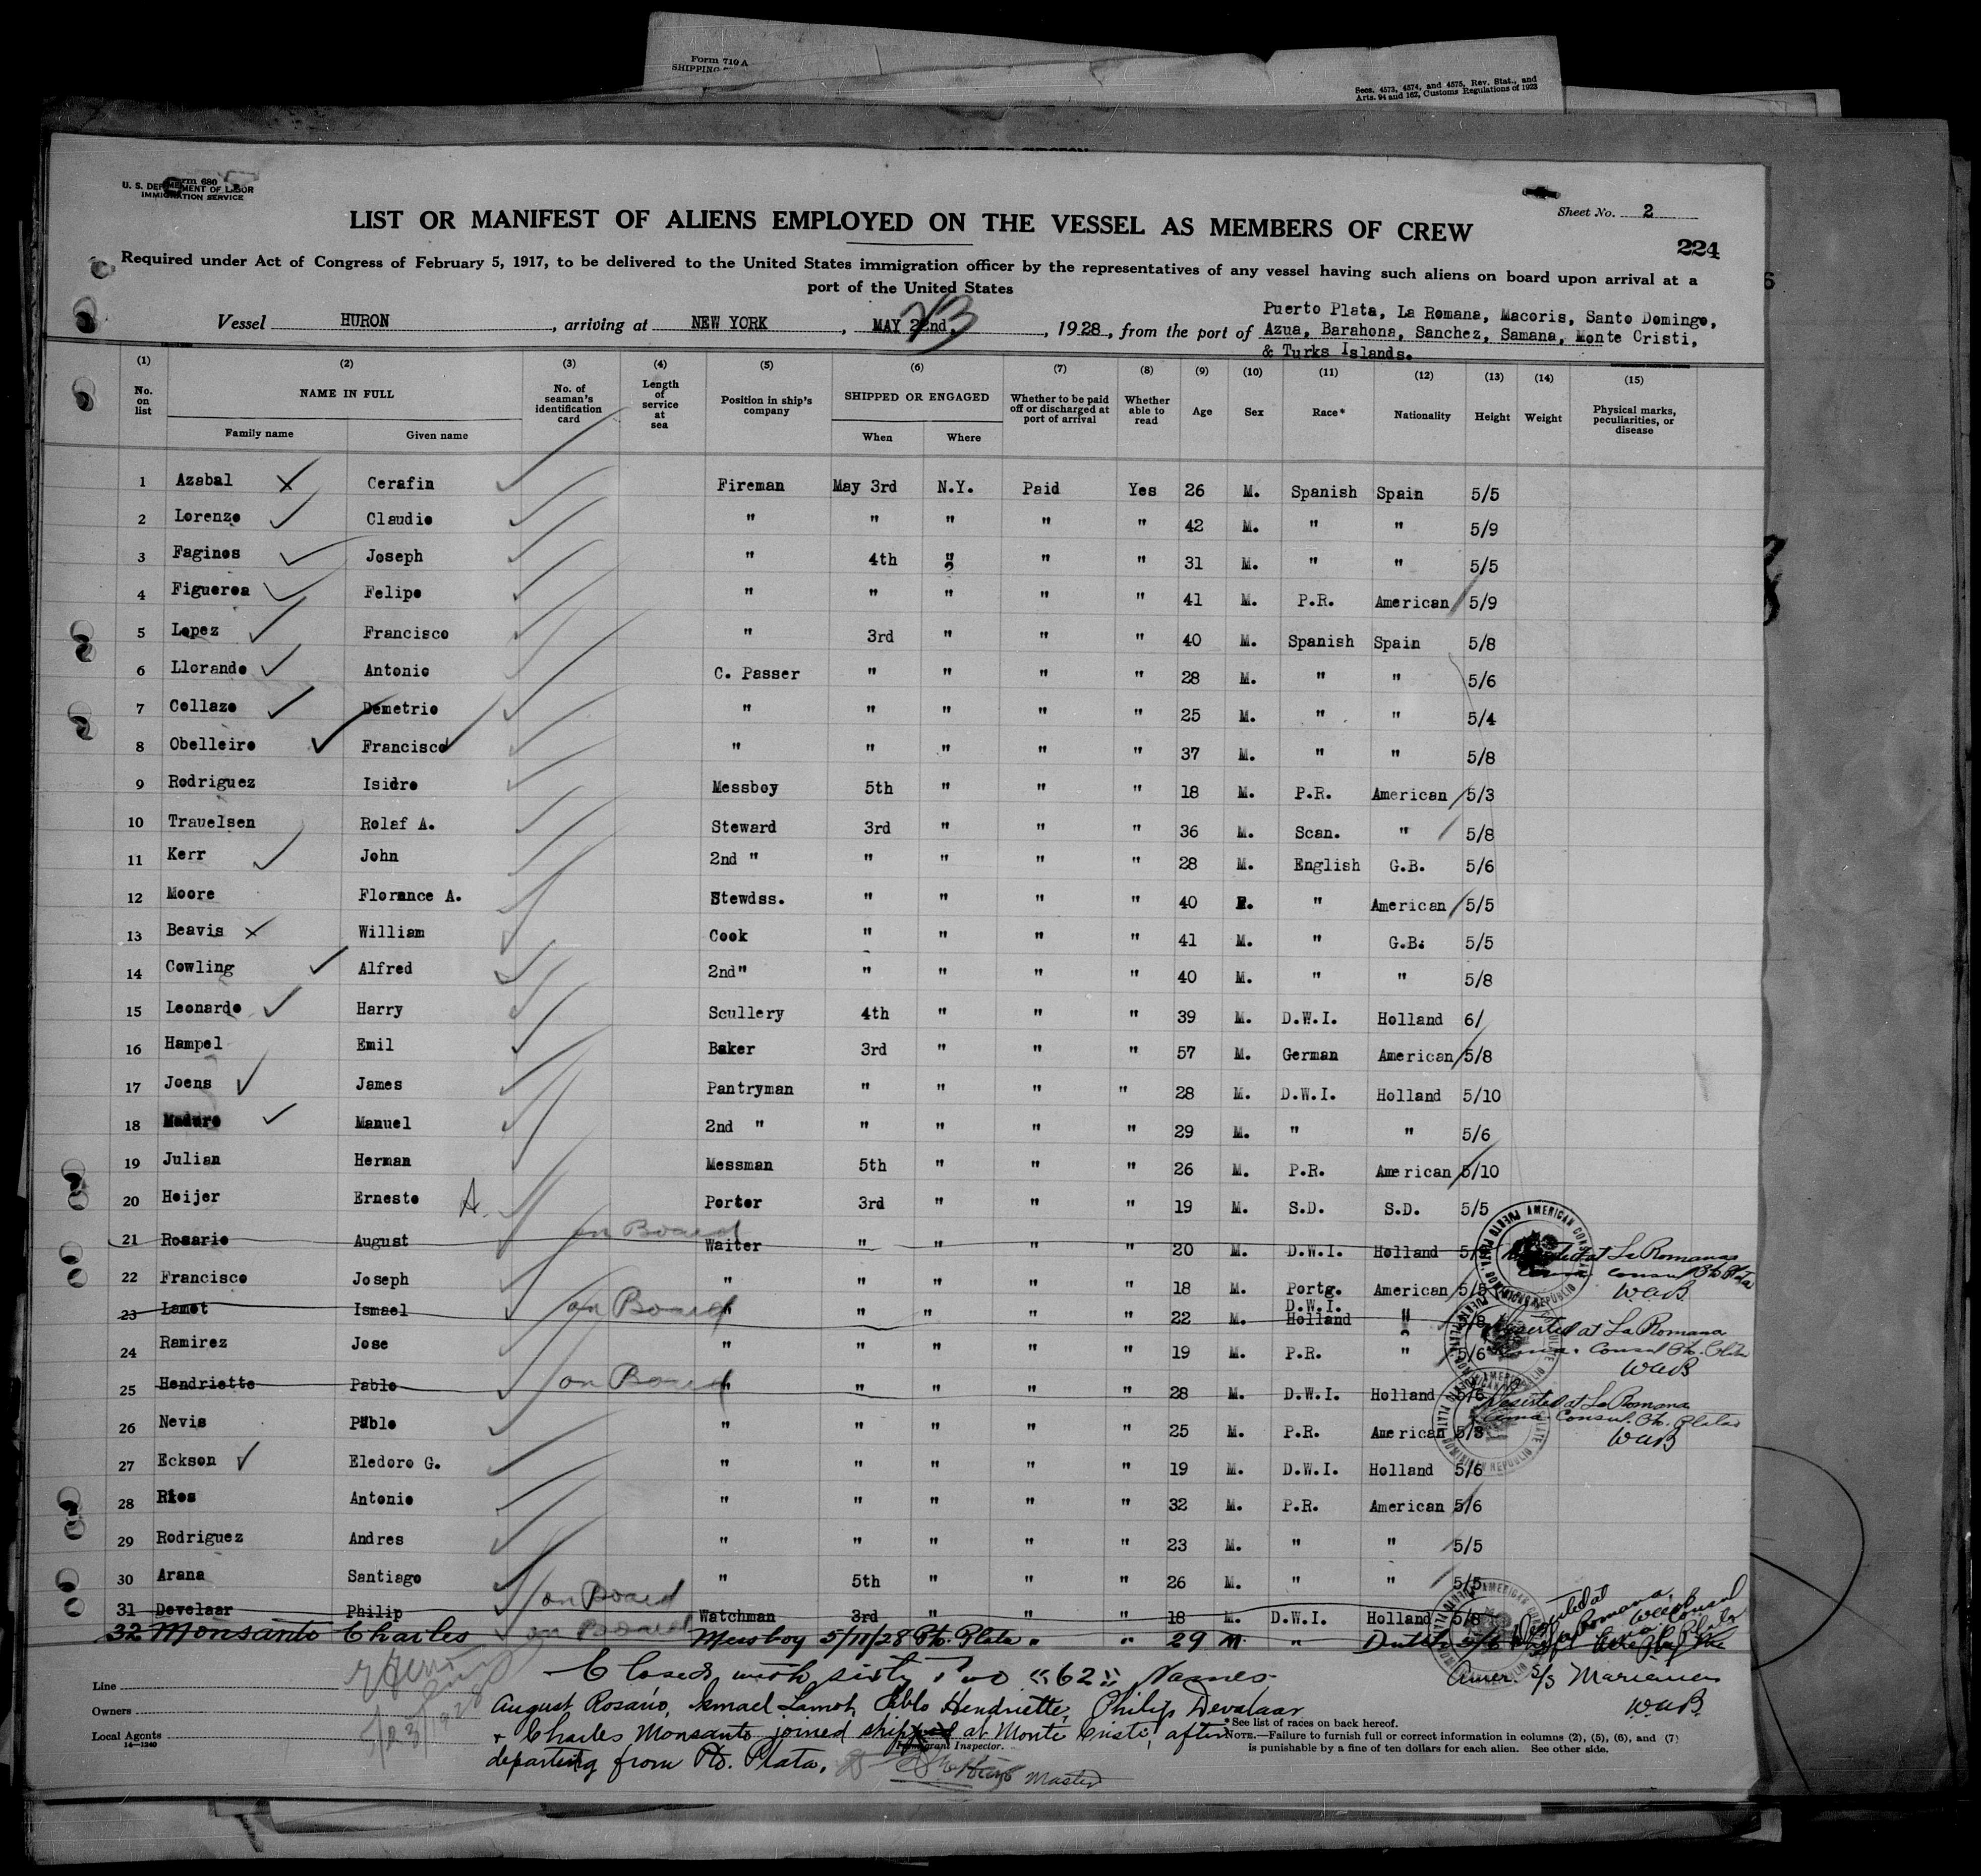 Form 710 A
SHIPPING
Secs. 4573, 4574, and 4575, Rev. Stat., and
Arts. 94 and 162, Customs Regulations of 1923
Form 680
U. S. DEPARTMENT OF LABOR
IMMIGRATION SERVICE
Sheet No. 2
LIST OR MANIFEST OF ALIENS EMPLOYED ON THE VESSEL AS MEMBERS OF CREW
224
Required under Act of Congress of February 5, 1917, to be delivered to the United States immigration officer by the representatives of any vessel having such aliens on board upon arrival at a
port of the United States
Vessel HURON, arriving at NEW YORK, MAY 22nd, 23 1928, from the port of Puerto Plata, La Romana, Macoris, Santo Domingo,
Azua, Barahona, Sanchez, Samana, Monte Cristi,
& Turks Islands.
(1) (2) (3) (4) (5) (6) (7) (8) (9) (10) (11) (12) (13) (14) (15)
No. on list NAME IN FULL No. of seaman's identification card Length of service at sea Position in ship's company SHIPPED OR ENGAGED Whether to be paid off or discharged at port of arrival Whether able to read Age Sex Race* Nationality Height Weight Physical marks, peculiarities, or disease
Family name Given name When Where
1 Azabal Cerafin Fireman May 3rd N.Y. Paid Yes 26 M. Spanish Spain 5/5
2 Lorenzo Claudio " " " " " 42 M. " " 5/9
3 Faginos Joseph " 4th " " " 31 M. " " 5/5
4 Figueroa Felipe " " " " " 41 M. P.R. American 5/9
5 Lopez Francisco " 3rd " " " 40 M. Spanish Spain 5/8
6 Llorando Antonio C. Passer " " " " 28 M. " " 5/6
7 Collazo Demetrio " " " " " 25 M. " " 5/4
8 Obelleiro Francisco " " " " " 37 M. " " 5/8
9 Rodriguez Isidro Messboy 5th " " " 18 M. P.R. American 5/3
10 Trauelsen Rolaf A. Steward 3rd " " " 36 M. Scan. " 5/8
11 Kerr John 2nd " " " " " 28 M. English G.B. 5/6
12 Moore Florance A. Stewdss. " " " " 40 F. " American 5/5
13 Beavis William Cook " " " " 41 M. " G.B. 5/5
14 Cowling Alfred 2nd" " " " " 40 M. " " 5/8
15 Leonardo Harry Scullery 4th " " " 39 M. D.W.I. Holland 6/
16 Hampel Emil Baker 3rd " " " 57 M. German American 5/8
17 Joens James Pantryman " " " " 28 M. D.W.I. Holland 5/10
18 Maduro Manuel 2nd " " " " " 29 M. " " 5/6
19 Julian Herman Messman 5th " " " 26 M. P.R. American 5/10
20 Heijer Ernesto A. Porter 3rd " " " 19 M. S.D. S.D. 5/5
21 Rosario August on Board Waiter " " " " 20 M. D.W.I. Holland Deserted at La Romana
22 Francisco Joseph " " " " " 18 M. Portg. American 5/5 W.A.B.
23 Lamot Ismael on Board " " " " " 22 M. D.W.I. Holland " 5/8 Deserted at La Romana
24 Ramirez Jose " " " " " 19 M. P.R. " 5/6 Consul Pto. Plata WAB
25 Hendriette Pablo on Board " " " " " 28 M. D.W.I. Holland 5/6 Deserted at La Romana
26 Nevis Pablo " " " " " 25 M. P.R. American 5/8 Consul. Pto. Plata WAB
27 Eckson Eledoro G. " " " " " 19 M. D.W.I. Holland 5/6
28 Rios Antonio " " " " " 32 M. P.R. American 5/6
29 Rodriguez Andres " " " " " 23 M. " " 5/5
30 Arana Santiago " 5th " " " 26 M. " " 5/5
31 Develaar Philip on Board Watchman 3rd " " " 18 M. D.W.I. Holland 5/8 Deserted at La Romana.
32 Monsanto Charles on Board Messboy 5/11/28 Pto. Plata " " 29 M " Dutch 5/6
Closed with sixty two "62" Names
Amer. S/S Marianna
W.A.B.
Line
Owners
Local Agents
14-1240
5/23/1928
August Rosario, Ismael Lamot, Pablo Hendriette, Philip Devalaar
+ Charles Monsanto joined ship at Monte Cristi, after
departing from Pto. Plata. Master
Immigrant Inspector.
* See list of races on back hereof.
NOTE.—Failure to furnish full or correct information in columns (2), (5), (6), and (7)
is punishable by a fine of ten dollars for each alien. See other side.